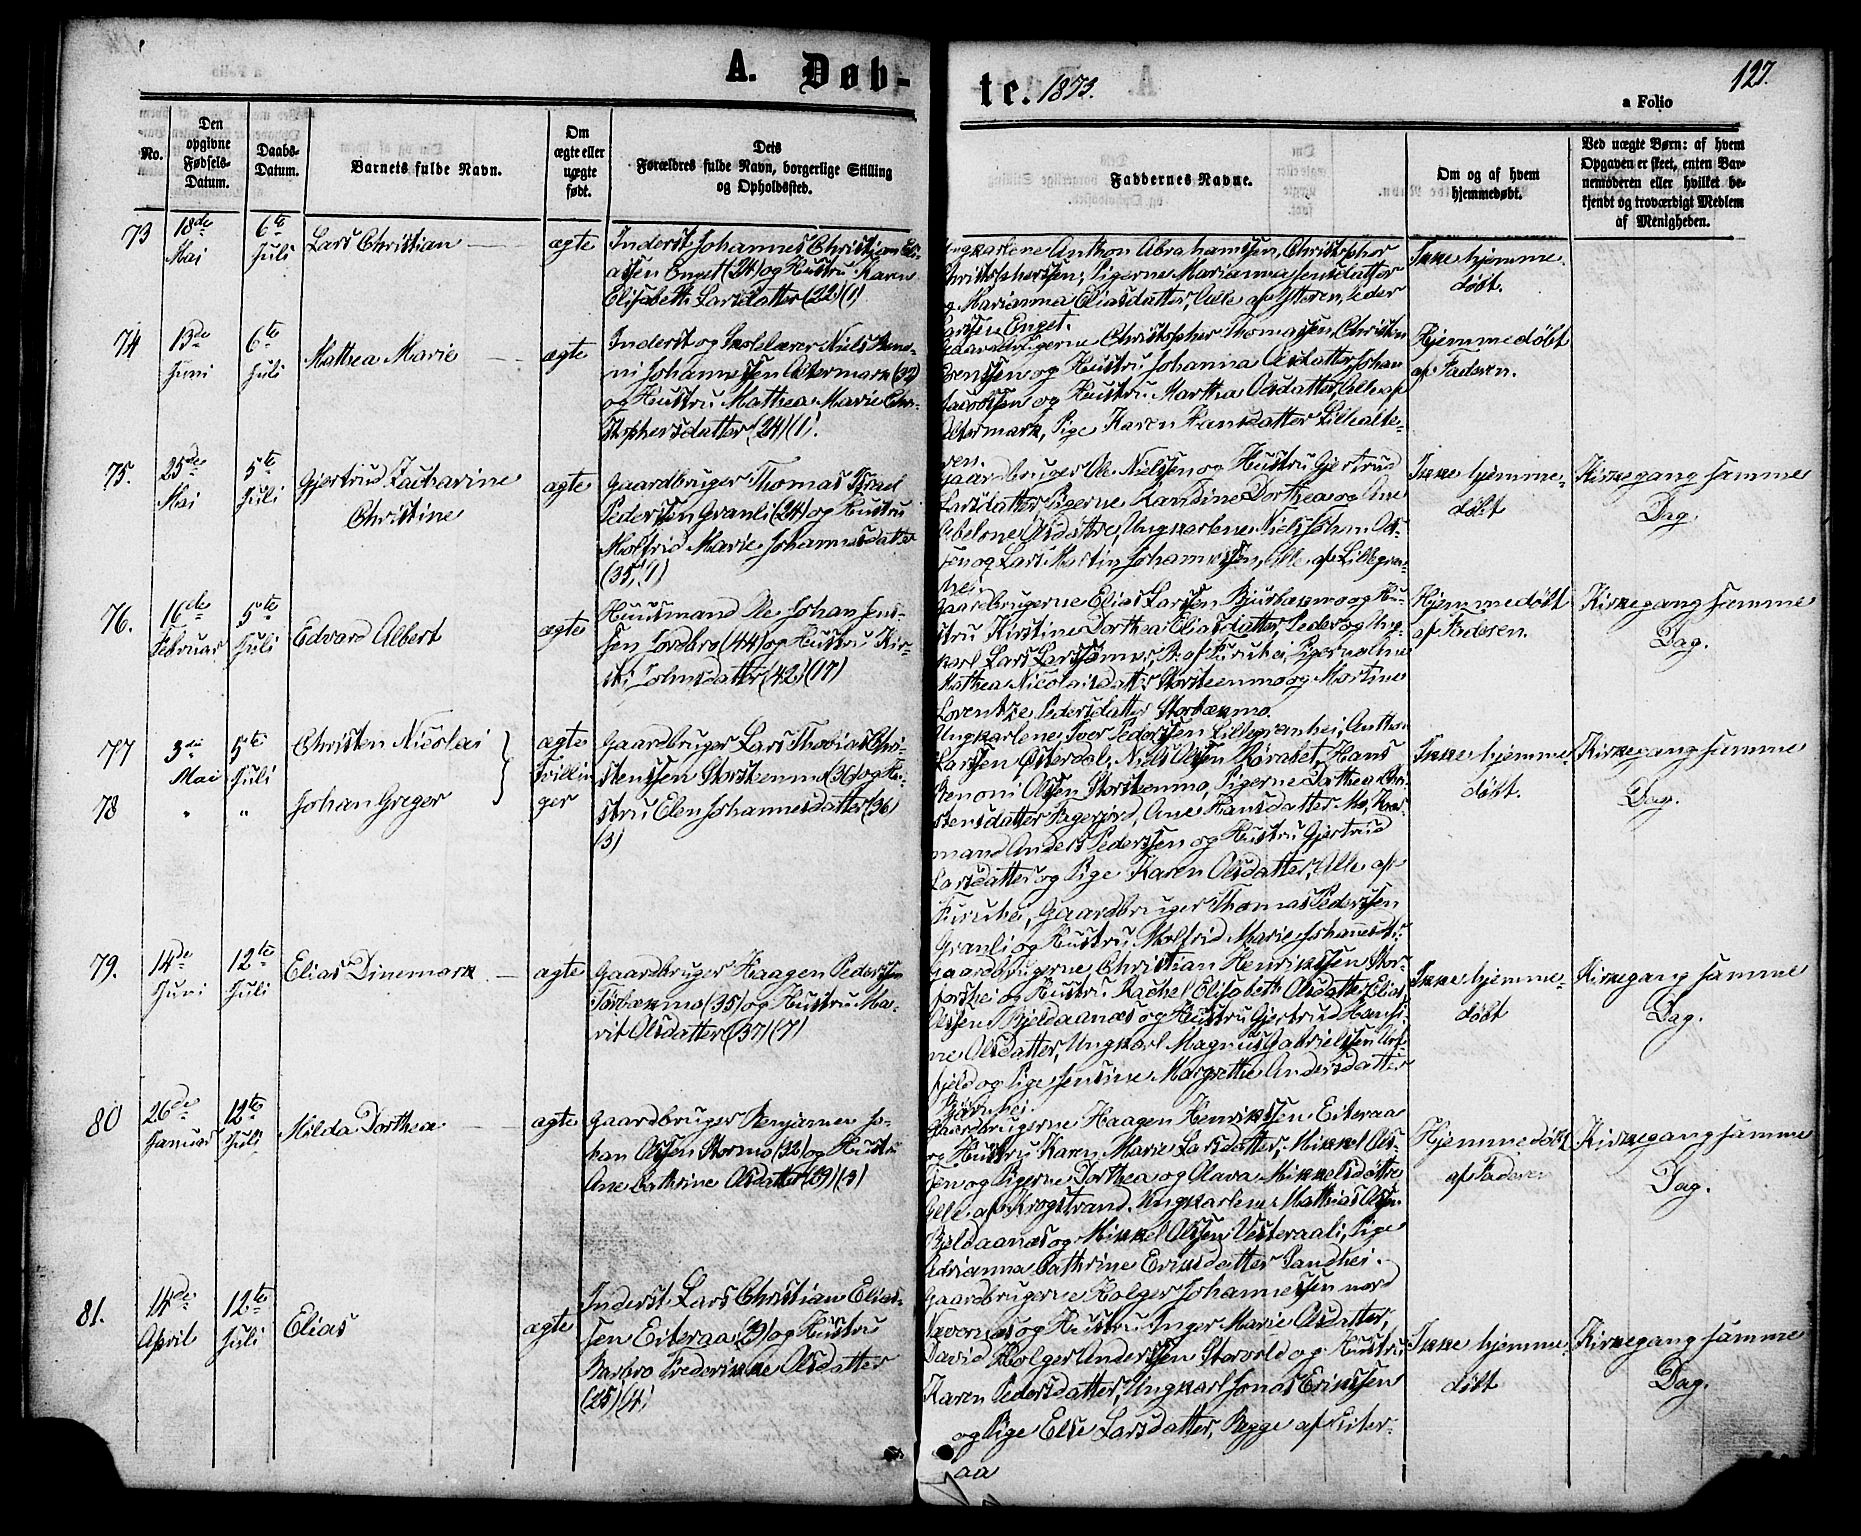 A. Døb-
te. 1873.
127.
a Folio
No.
Den
opgivne
Fødsels-
Datum.
Daabs-
Datum.
Barnets fulde Navn.
Om
ægte eller
uægte
født.
Dets
Forældres fulde Navn, borgerlige Stilling
og Opholdssted.
Faddernes Navne.
Om og af hvem
hjemmedøbt.
Ved uægte Børn: af hvem
Opgaven er skeet, enten Bar-
nemoderen eller hvilket be-
kjendt og troværdigt Medlem
af Menigheden.
73
18de
Mai
6te
Juli
Lars Christian
ægte
Inderst Johannes Christian Eli-
assen Enget (24) og Hustru Karen
Elisabeth Larsdatter (22) (1)
Ungkarlene Anthon Abrahamssen, Christopher
Christophersen, Pigerne Marianna Jensdatter
og Marianna Eliasdatter, Alle af Ytteren, Peder
Larssen Enget.
Ikke hjemme-
døbt.
74
13de
Juni
6te
Juli
Mathea Marie
ægte
Inderst og Skolelærer Niels Beno-
ni Johannessen Altermark (32)
og Hustru Mathea Marie Chri-
stophersdatter (24) (1).
Gaardbrugerne Christopher Thomassen, Christen
Sørenssen og Hustru Johanna Olsdatter, Johan
Jacobssen og Hustru Martha Olsdatter, Alle af
Altermark, Pige Karen Hansdatter Lillealte-
ren.
Hjemmedøbt
af Faderen.
75.
25de
Mai
5te
Juli
Gjertrud Zacharine
Christine
ægte
Gaardbruger Thomas Israel
Pederssen Granli (24) og Hustru
Molfrid Marie Johannesdatter
(35) (1)
Gaardbruger Ole Nielssen og Hustru Gjertrud
Larsdatter, Pigerne Randine Dorthea og Ane
Abelone Olsdattre, Ungkarlene Niels Johan Ols-
sen og Lars Martin Johannessen, Alle af Lillegran-
hei.
Ikke hjemme-
døbt
Kirkegang samme
Dag.
76.
16de
Februar
5te
Juli
Edvard Albert
ægte
Huusmand Ole Johan Jens-
sen Josbro (44) og Hustru Kir-
sti Johnsdatter (42) (17)
Gaardbrugerne Elias Larssen Bjurbækmo og Hu-
stru Kirstine Dorthea Eliasdatter, Peder og Ung-
karl Lars Larssønner, B. af Furuhei, Pigerne Elene
Mathea Nicolaisdatter Storsteenmo og Martine
Lorentze Pedersdatter Storbækmo.
Hjemmedøbt
af Faderen.
Kirkegang samme
Dag.
77
3die
Mai
5te
Juli
Christen Nicolai
ægte
Tvillin-
ger
Gaardbruger Lars Thobias Chri-
stenssen Storstenmo (36) og Hu-
stru Elen Johannesdatter (36)
(3)
78
"
"
Johan Greger
Ungkarlene Iver Pederssen Lillegranhei, Anthon
Larssen Østerdal, Niels Olssen Kirabet, Hans
Benoni Olssen Storstenmo, Pigerne Dorthea Chri-
stensdatter Fagerjord, Ane Hansdatter Mo, Huus-
mand Anders Pederssen og Hustru Gjertrud
Larsdatter og Pige Karen Olsdatter, Alle af
Furuhei, Gaardbruger Thomas Pederssen
Granli og Hustru Molfrid Marie Johannesdtr.
Ikke hjemme
døbt.
Kirkegang samme
Dag.
79.
14de
Juni
12te
Juli
Elias Dinemark
ægte
Gaardbruger Haagen Pederssen
Torbækmo (35) og Hustru Ma-
rit Olsdatter (37) (7)
Gaardbrugerne Christian Henrikssen Stor-
forshei og Hustru Rachel Elisabeth Olsdatter, Elias
Olssen Bjeldaanæs og Hustru Gjertrud Hansi-
ne Olsdatter, Ungkarl Magnus Gabrielssen
fjeld og Pige Jensine Margrethe Andersdatter
Ikke hjemme-
døbt
Kirkegang samme
Dag.
80
26de
Januar
12te
Juli
Milda Dorthea
ægte
Gaardbruger Benjamin Jo-
han Olssen Stormo (32) og Hustru
Ane Cathrine Olsdatter (29) (3)
Gaardbrugerne Haagen Henrikssen Eiteraa
og Hustru Karen Marie Larsdatter, Mikkel Ols-
sen og Pigerne Dorthea og Olava Mikkelsdattre
Alle af Krogstrand, Ungkarlene Mathias Olssen
Bjeldaanæs og Mikkel Olssen Vesteraali, Pige
Adrianna Cathrine Eriksdatter Randhei.
Hjemmedøbt
af Faderen
Kirkegang samme
Dag.
81.
14de
April
12te
Juli
Elias
ægte
Inderst Lars Christian Elias-
sen Eiteraa (29) og Hustru
Barbro Frederikke Olsdatter
(25) (4)
Gaardbrugerne Holger Johannessen nord
Nævernæs og Hustru Inger Marie Olsdatter,
David Holger Anderssen Storvold og Hustru
Karen Pedersdatter, Ungkarl Jonas Erikssen
og Pige Else Larsdatter, Begge af Eiter-
aa
Ikke hjemme
døbt
Kirkegang samme
Dag.